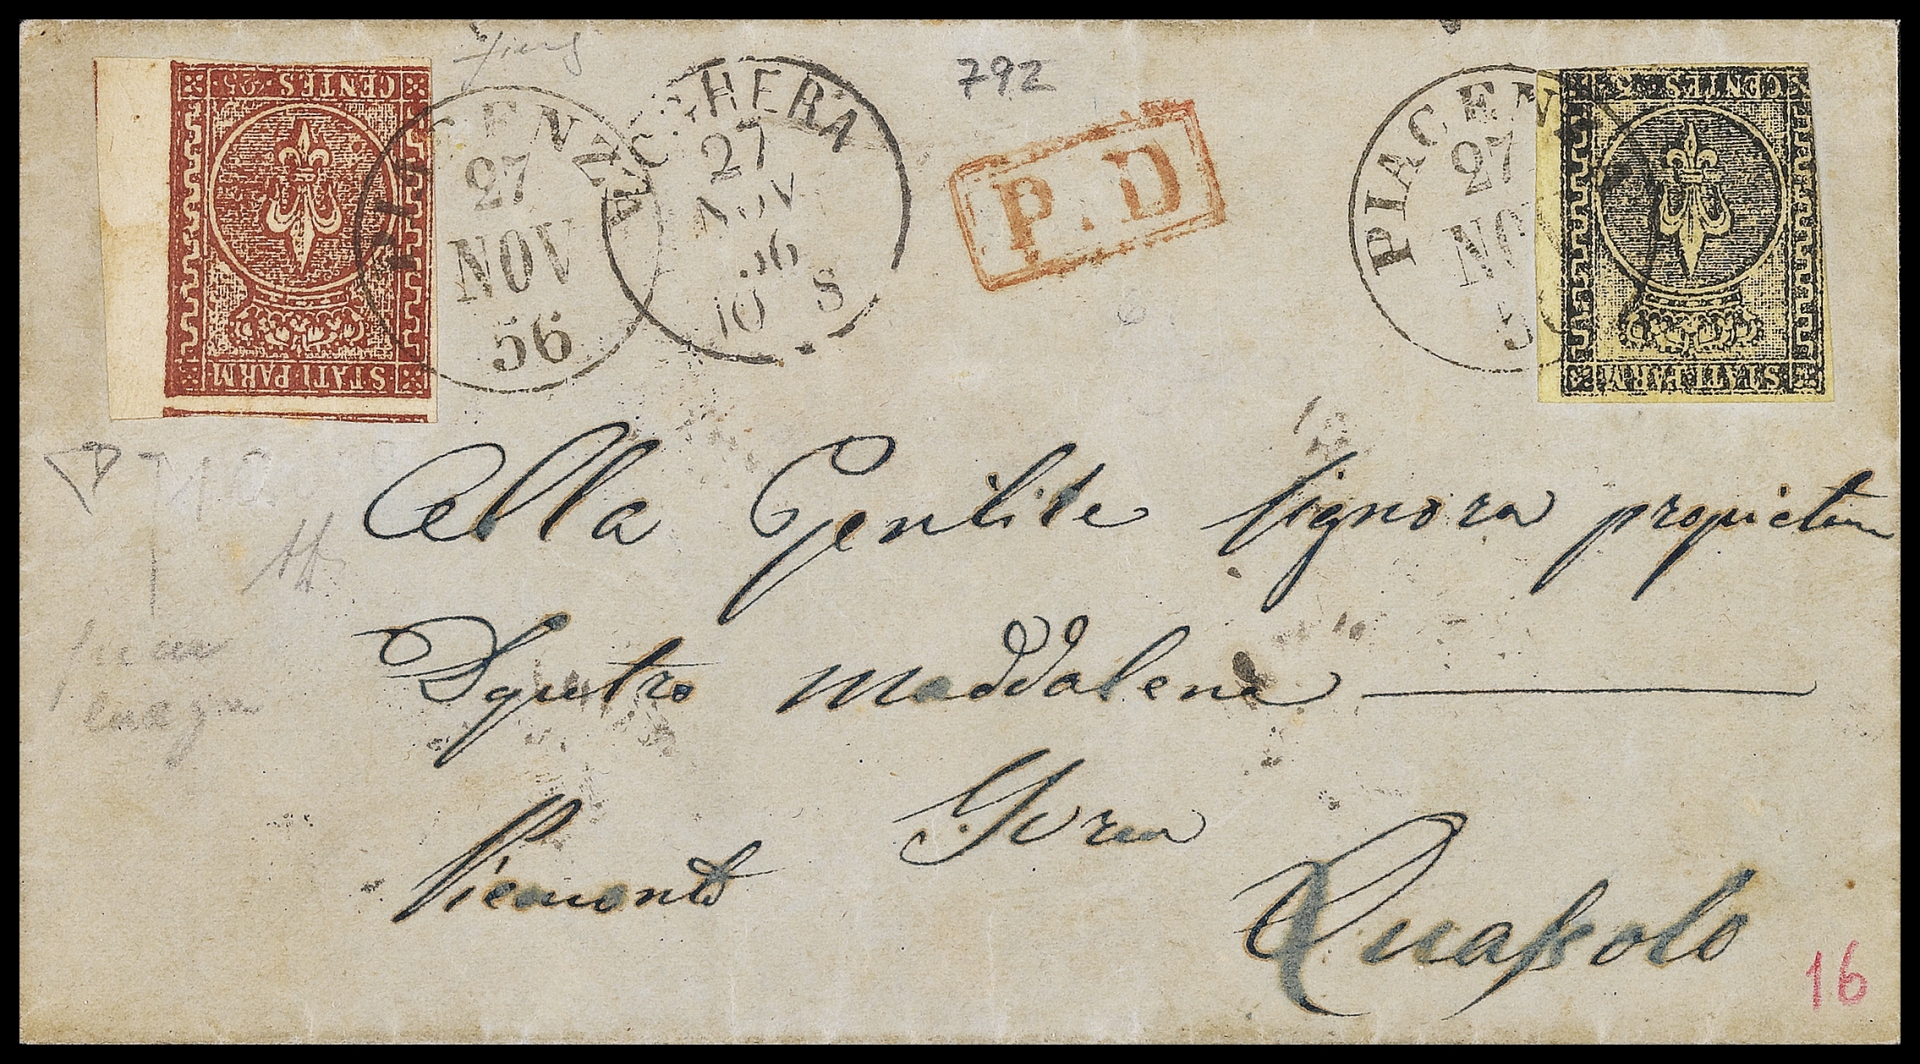 792
CENTES. 25.
STATI PARM
PIACENZA
27
NOV
56
VOGHERA
27
NOV
56
10 S
P. D
PIACENZ
27
NOV
5
CENTES. 5
STATI PARM
Alla Gentile Signora
Maddalena
Ivrea
Piemonte
Quassolo
16